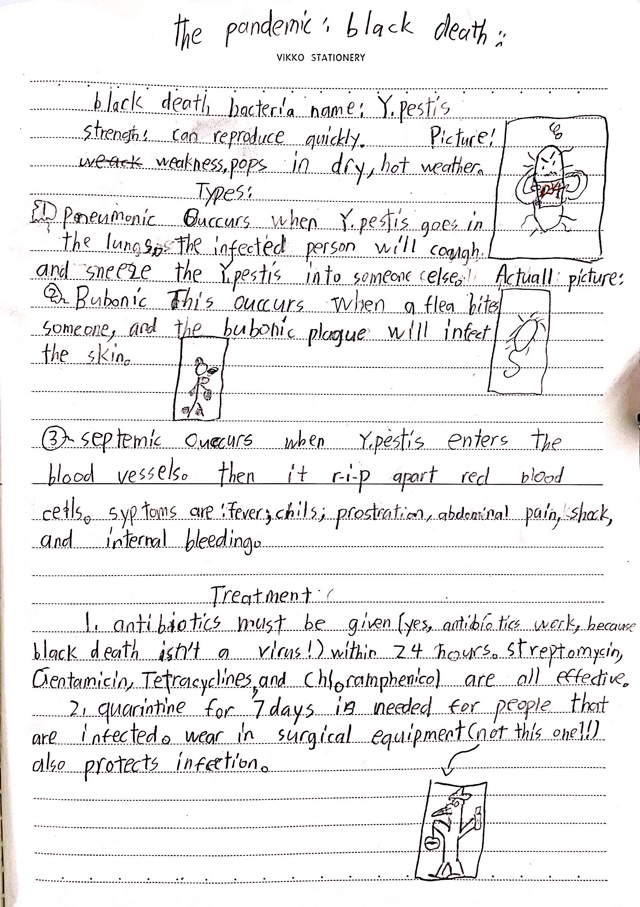 the pandemic: black death:
VIKKO STATIONERY
black death bacteria name: Y.pestis
strength: can reproduce quickly. Picture!
weack weakness,pops in dry, hot weather.
Types:
1 Pneumonic Ouccurs when Y.pestis goes in
the lungs, the infected person will cough
and sneeze the Y.pestis into someone else. Actuall picture:
2 Bubonic This ouccurs when a flea bites
someone, and the bubonic plague will infect
the skin.
3 septemic Ouccurs when Y.pestis enters the
blood vessels. then it r-i-p apart red blood
cells. syptoms are: fever; chils; prostration, abdominal pain, shock,
and internal bleeding.
Treatment:
1. antibiotics must be given (yes, antibiotics work, because
black death isn't a virus!) within 24 hours. streptomycin,
Gentamicin, Tetracyclines, and Chloramphenicol are all effective.
2. quarintine for 7 days is needed for people that
are infected. wear in surgical equipment (not this one!!)
also protects infection.